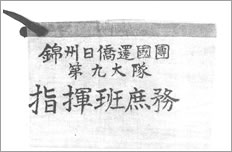 錦州日僑還國團
第九大隊
指揮班庶務